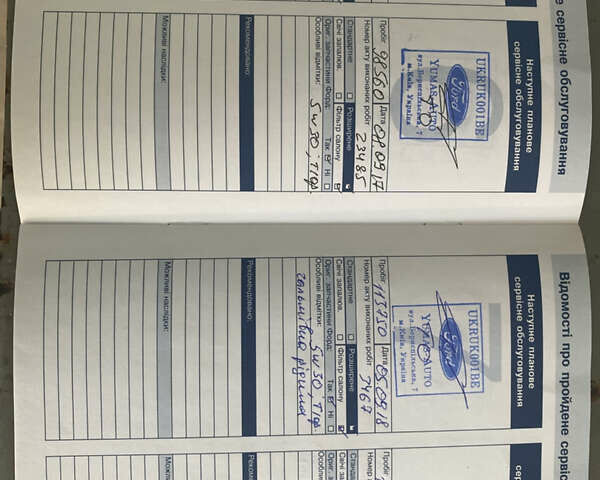 е сервісне обслуговування
Наступне планове
сервісне обслуговування
UKRUK001BE
Ford
YUMAS AUTO
вул.Бориспільська, 7
м.Київ, Україна
Пробіг 98560 Дата 08.09.17
Номер акту виконаних робіт 23485
Стандартне Розширене
Свічі запалюв. Фільтр салону
Ориг. запчастини Форд: Так Ні
Особливі відмітки: 5w30,
Рекомендовано:
Можливі наслідки:
Відомості про пройдене сервіс
Наступне планове
сервісне обслуговування
UKRUK001BE
Ford
AUTO
вул.Бориспільська, 7
м.Київ, Україна
Пробіг 113750 Дата 05.09.18
Номер акту виконаних робіт 7467
Стандартне Розширене
Свічі запалюв. Фільтр салону
Ориг. запчастини Форд: Так Ні
Особливі відмітки: 5w30,
гальмівна рідина
Рекомендовано:
Можливі наслідки:
сер
Пробіг
Номер
Станда
Свічі за
Ориг. з
Особли
Рекоме
Можли